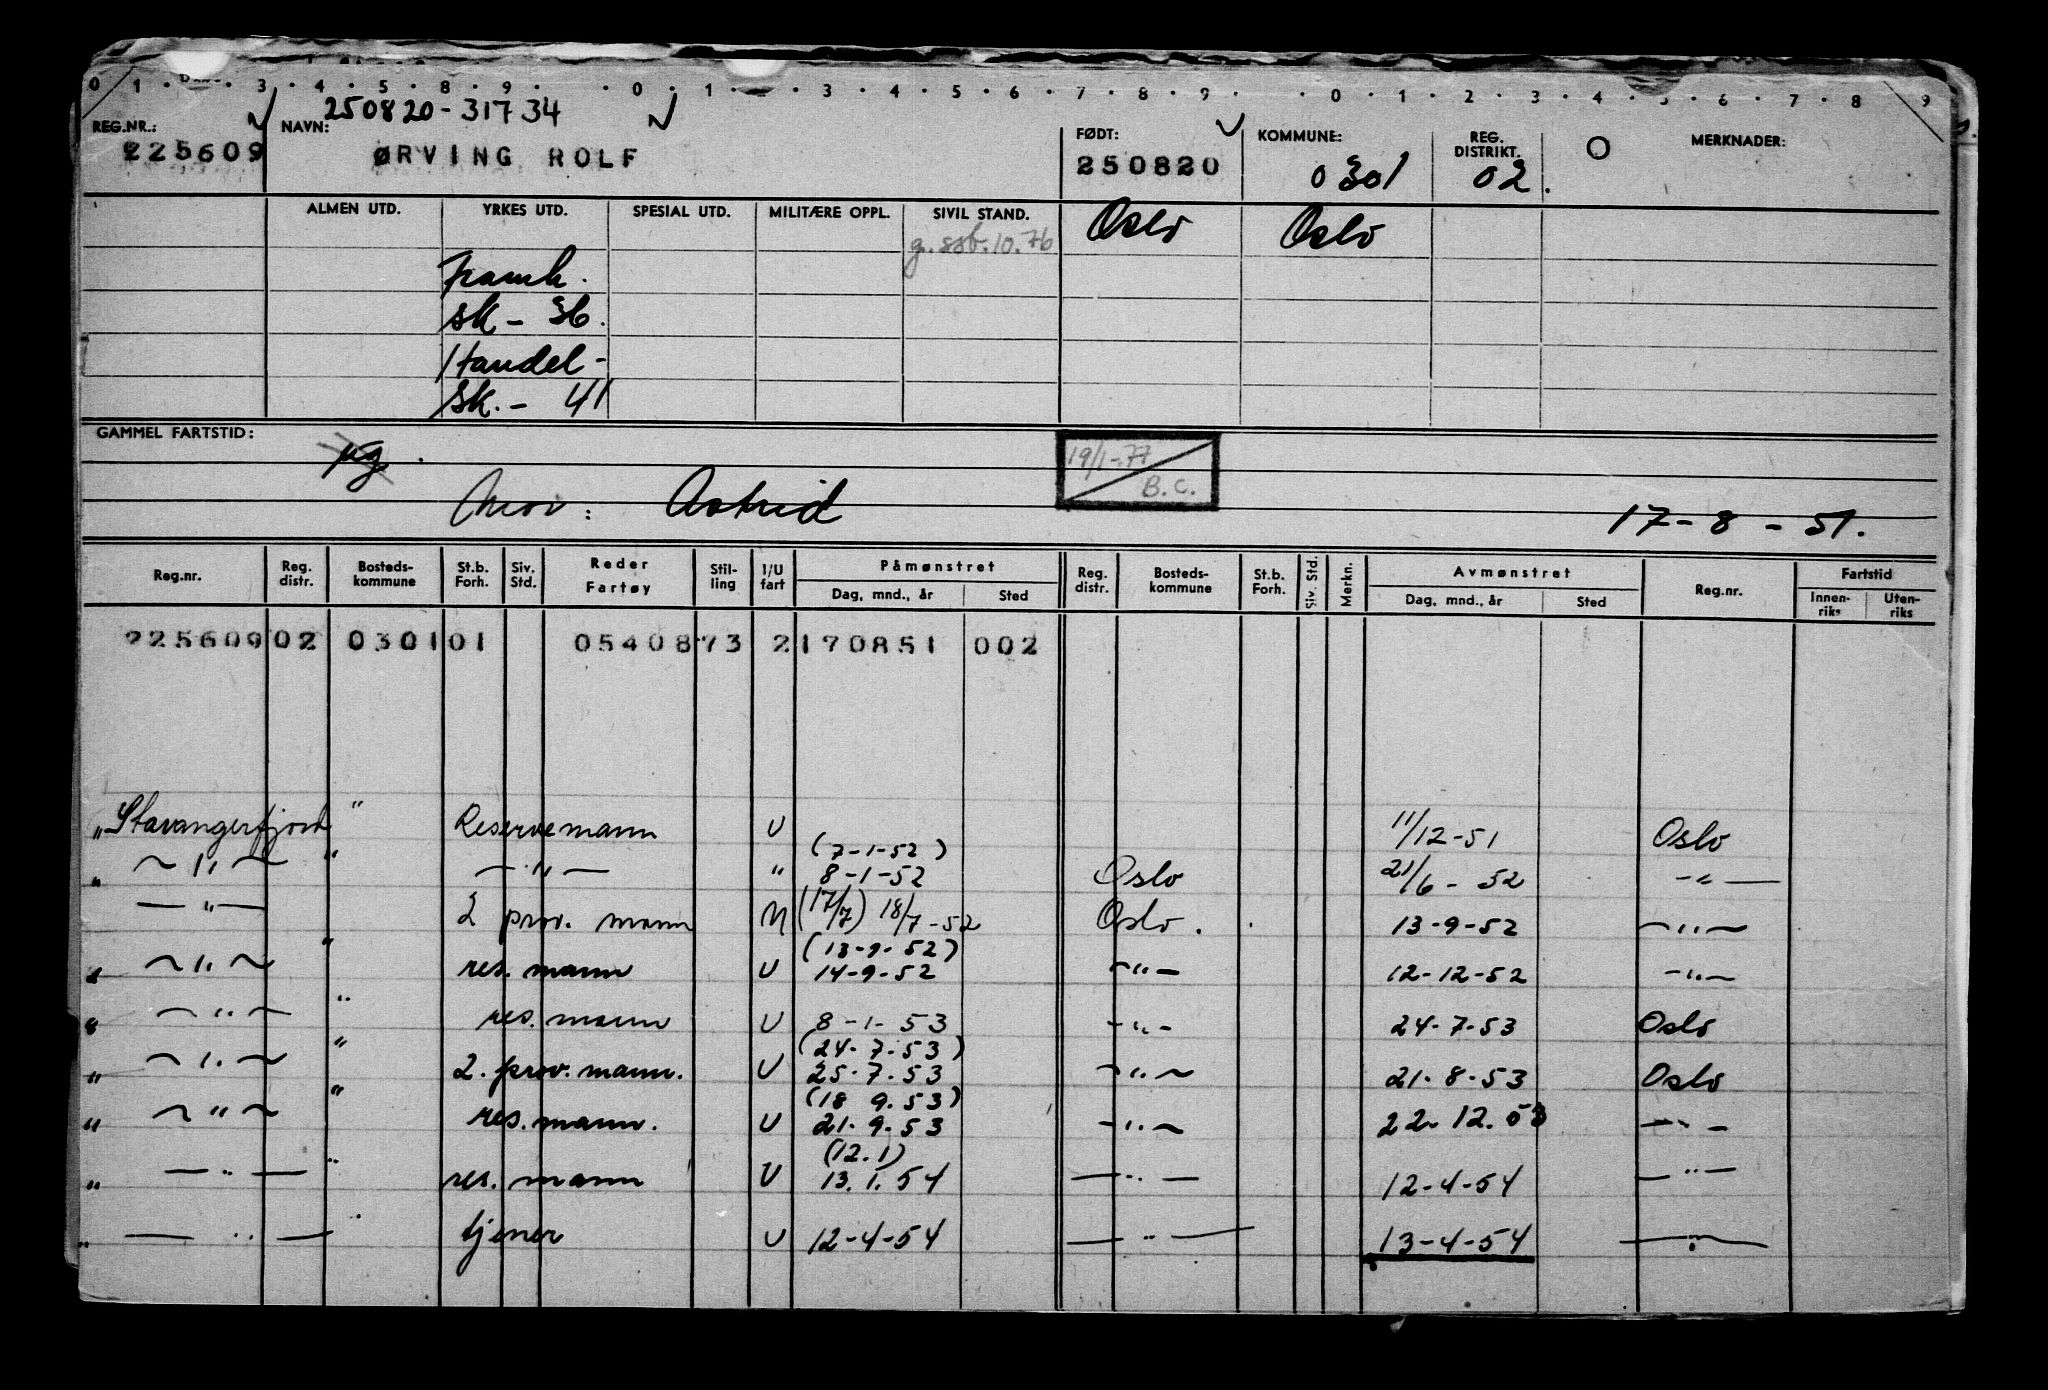 0 1 . . 3 . 4 . 5 . 8 . 9 . . 0 . 1 . . 3 . 4 . 5 . 6 . 7 . 8 . 9 . . 0 . 1 . 2 . 3 . 4 . 5 . 6 . 7 . 8 9
250820-31734
REG.NR.: NAVN: FØDT: KOMMUNE: REG. DISTRIKT. O MERKNADER:
225609 ØRVING ROLF 250820 0301 02.
ALMEN UTD. YRKES UTD. SPESIAL UTD. MILITÆRE OPPL. SIVIL STAND. Oslo Oslo
g. ssb. 10.76
framh.
sk - 36.
Handel-
sk. - 41
GAMMEL FARTSTID:
ug. 19/1-77
B.C.
Mor: Astrid 17-8-51.
Reg.nr. Reg. distr. Bosteds-kommune St.b. Forh. Siv. Std. Reder Fartøy Stil-ling I/U fart Påmønstret Dag, mnd., år Sted Reg. distr. Bosteds-kommune St.b. Forh. Siv. Std. Merkn. Avmønstret Dag, mnd., år Sted Reg.nr. Fartstid Innen-riks Uten-riks
225609 02 0301 01 0540873 2 170851 002
" Stavangerfjord " Reservemann U 11/12-51 Oslo
(7-1-52)
" — " — " — " — " 8-1-52 Oslo 21/6-52 — " —
— " — 2 prov. mann U (17/7) 18/7-52 Oslo. 13-9-52 — " —
(13-9-52)
" — " — " res. mann U 14-9-52 — " — 12-12-52 — " —
" — " — " res. mann U 8-1-53 — " — 24-7-53 Oslo
(24-7-53)
" — " — " 2. prov. mann. U 25-7-53 — " — 21-8-53 Oslo
(18 9.53)
" — " — " res. mann. U 21-9-53 — " — 22-12.53 — " —
(12.1)
" — " — " res. mann U 13.1.54 — " — 12-4-54 — " —
" — " — " tjener U 12-4-54 — " — 13-4-54 — " —